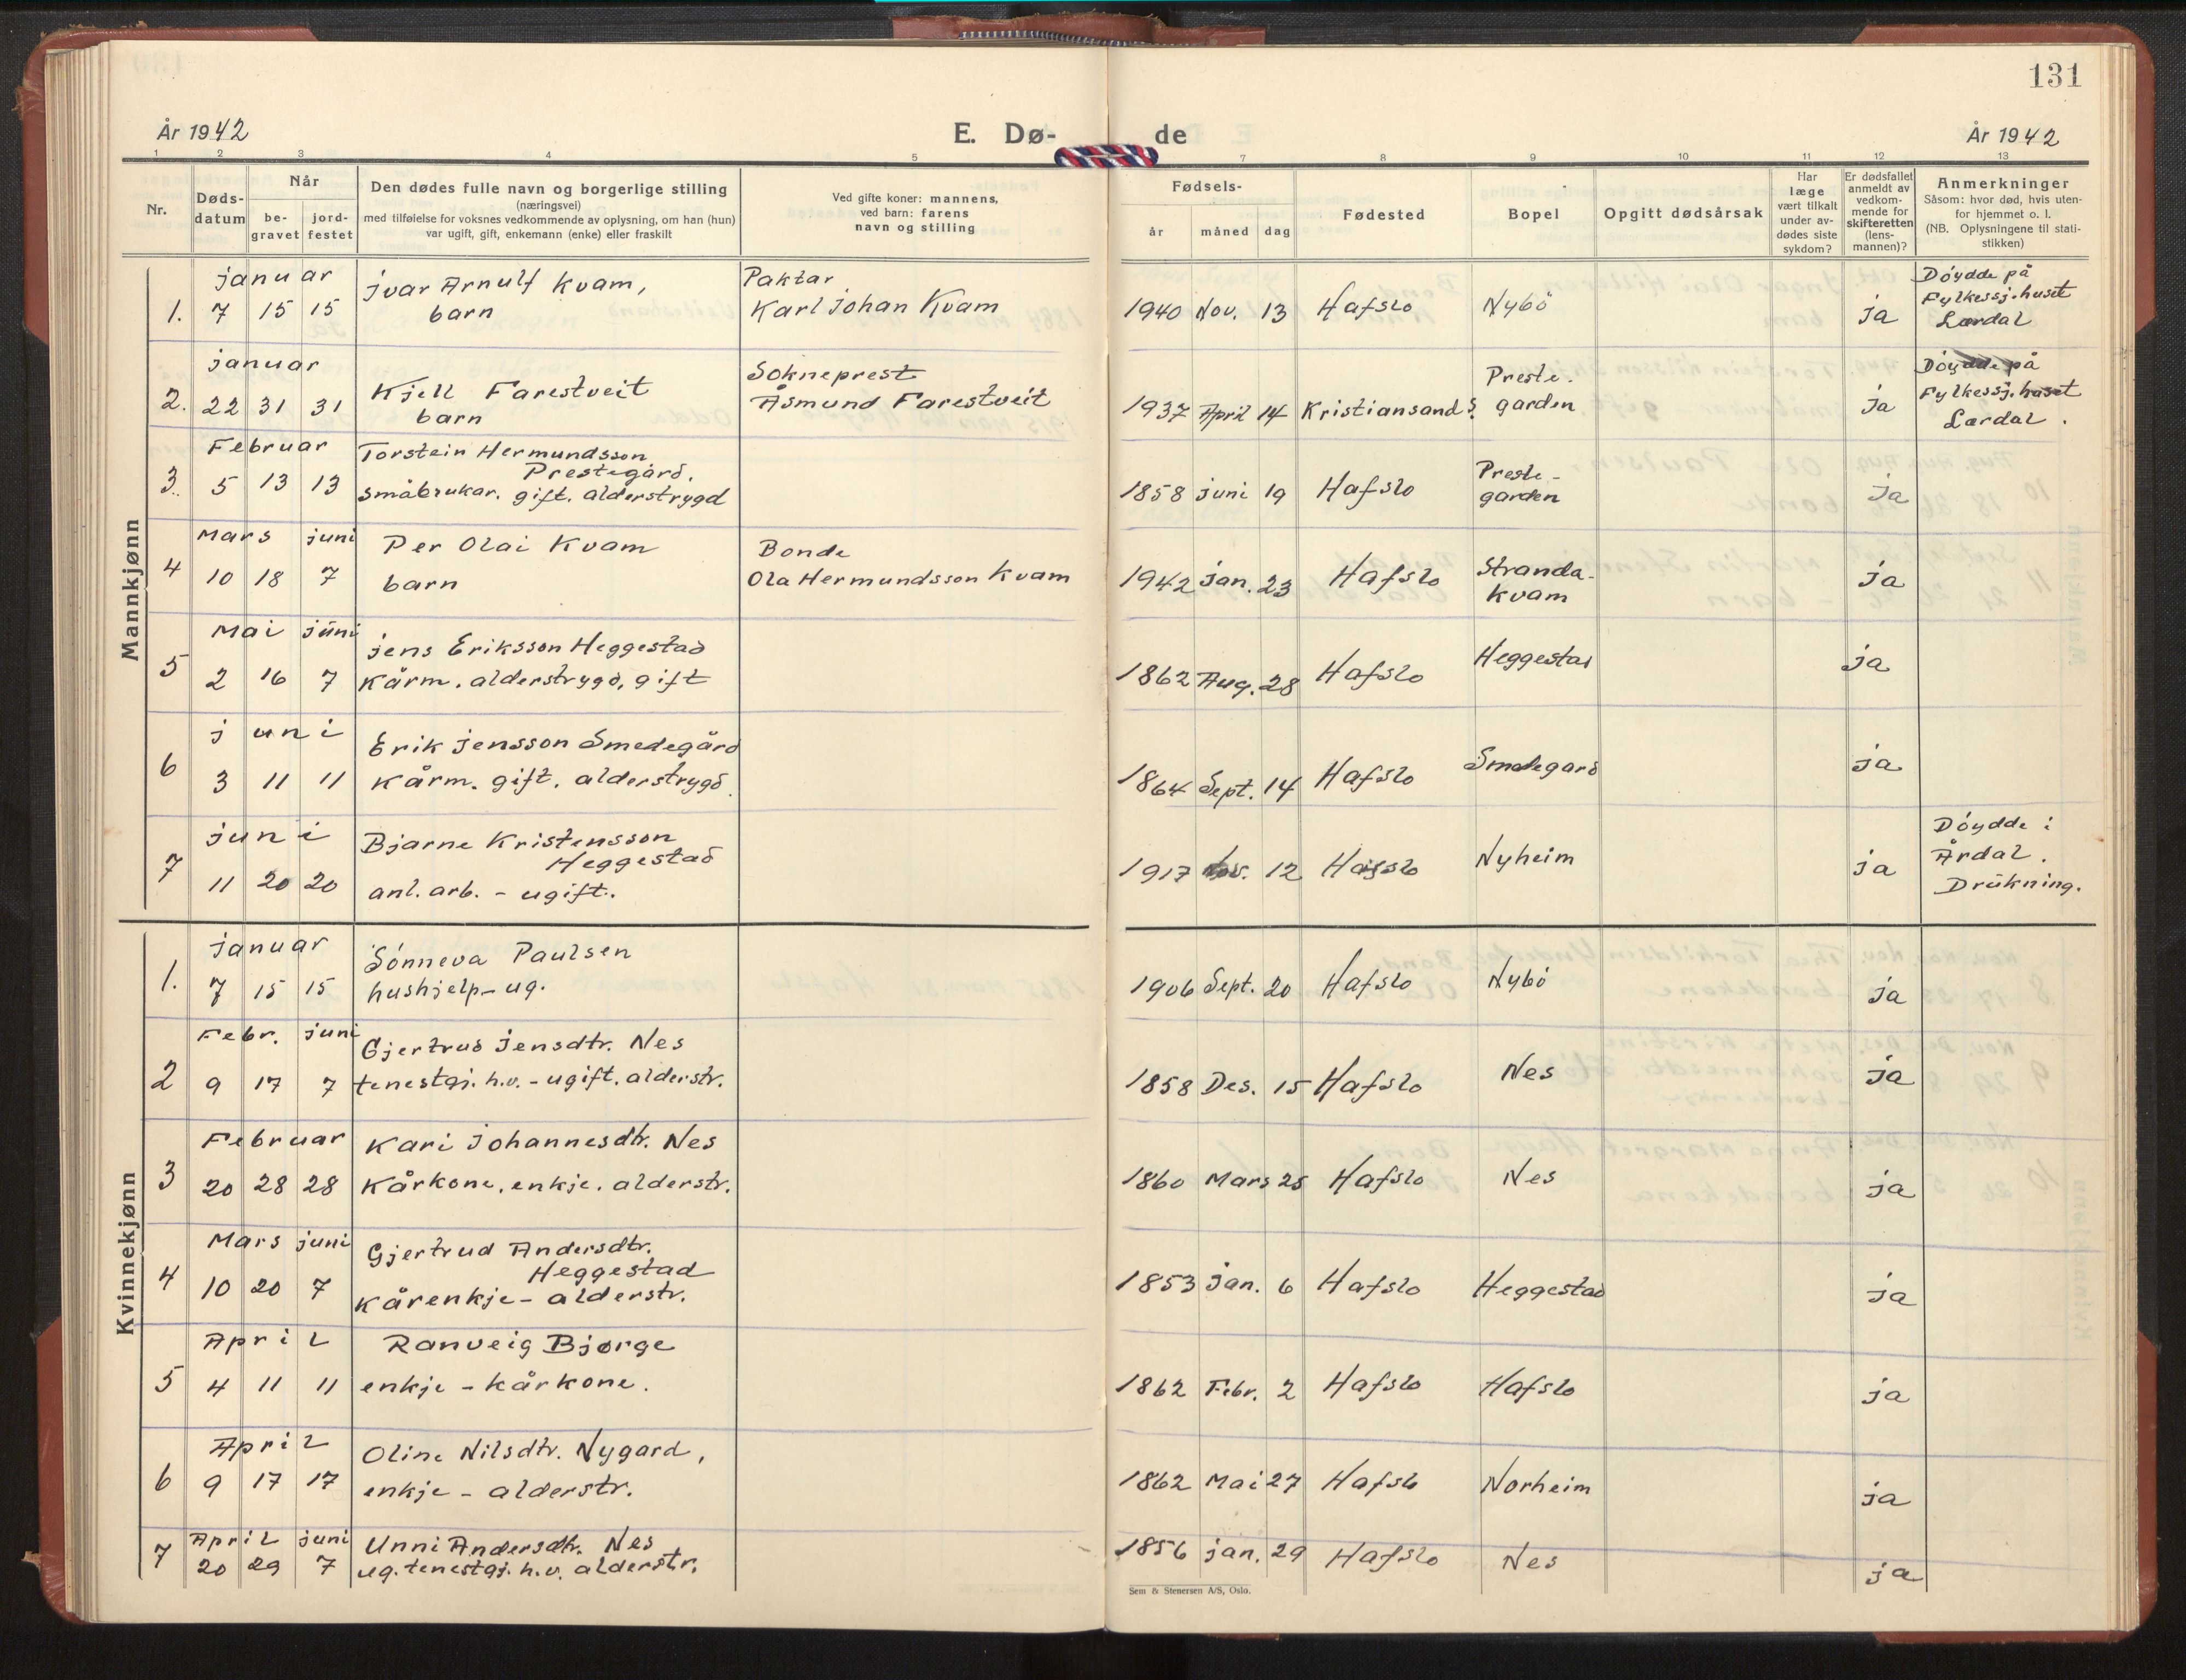 131
År 1942
E. Dø- de
År 1942
1 2 3 4 5 7 8 9 10 11 12 13
Nr.
Døds-
datum
Når
be-
gravet
jord-
festet
Den dødes fulle navn og borgerlige stilling
(næringsvei)
med tilføielse for voksnes vedkommende av oplysning, om han (hun)
var ugift, gift, enkemann (enke) eller fraskilt
Ved gifte koner: mannens,
ved barn: farens
navn og stilling
Fødsels-
år måned dag
Fødested
Bopel
Opgitt dødsårsak
Har
læge
vært tilkalt
under av-
dødes siste
sykdom?
Er dødsfallet
anmeldt av
vedkom-
mende for
skifteretten
(lens-
mannen)?
Anmerkninger
Såsom: hvor død, hvis uten-
for hjemmet o. l.
(NB. Oplysningene til stati-
stikken)
Mannkjønn
januar
1. 7 15 15
Ivar Arnulf Kvam,
barn
Paktar
Karl Johan Kvam
1940 Nov. 13 Hafslo Nybö ja
Döydde på
Fylkessj.huset
Lærdal
januar
2. 22 31 31
Kjell Farestveit
barn
Sokneprest
Åsmund Farestveit
1937 April 14 Kristiansand S.
Preste-
garden
ja
Döydde på
Fylkessj.huset
Lærdal.
Februar
3. 5 13 13
Torstein Hermundsson
Prestegård.
småbrukar. gift. alderstrygd
1858 juni 19 Hafslo
Preste-
garden
ja
Mars juni
4 10 18 7
Per Olai Kvam
barn
Bonde
Ola Hermundsson Kvam
1942 jan. 23 Hafslo
Stranda-
Kvam
ja
Mai juni
5 2 16 7
Jens Eriksson Heggestad
Kårm. alderstrygd, gift
1862 Aug. 28 Hafslo Heggestad ja
juni
6 3 11 11
Erik Jensson Smedegård
Kårm. gift. alderstrygd.
1864 Sept. 14 Hafslo Smedegard ja
juni
7 11 20 20
Bjarne Kristensson
Heggestad
anl. arb. - ugift.
1917 12 Hafslo Nyheim ja
Döydde i
Årdal.
Drukning.
Kvinnekjønn
januar
1. 7 15 15
Sönneva Paulsen
hushjelp - ug.
1906 Sept. 20 Hafslo Nybö ja
Febr. juni
2 9 17 7
Gjertrud Jensdtr. Nes
tenestgj. h.v. - ugift. alderstr.
1858 Des. 15 Hafslo Nes ja
Februar
3 20 28 28
Kari Johannesdtr. Nes
Kårkone, enkje. alderstr.
1860 Mars 25 Hafslo Nes ja
Mars juni
4 10 20 7
Gjertrud Andersdtr.
Heggestad
Kårenkje - alderstr.
1853 jan. 6 Hafslo Heggestad ja
April
5 4 11 11
Ranveig Bjørge
enkje - kårkone.
1862 Febr. 2 Hafslo Hafslo ja
April
6 9 17 17
Oline Nilsdtr. Nygard,
enkje - alderstr.
1862 Mai 27 Hafslo Norheim ja
April juni
7 20 29 7
Unni Andersdtr. Nes
ug. tenestgj. h.v. alderstr.
1856 jan. 29 Hafslo Nes ja
Sem & Stenersen A/S, Oslo.